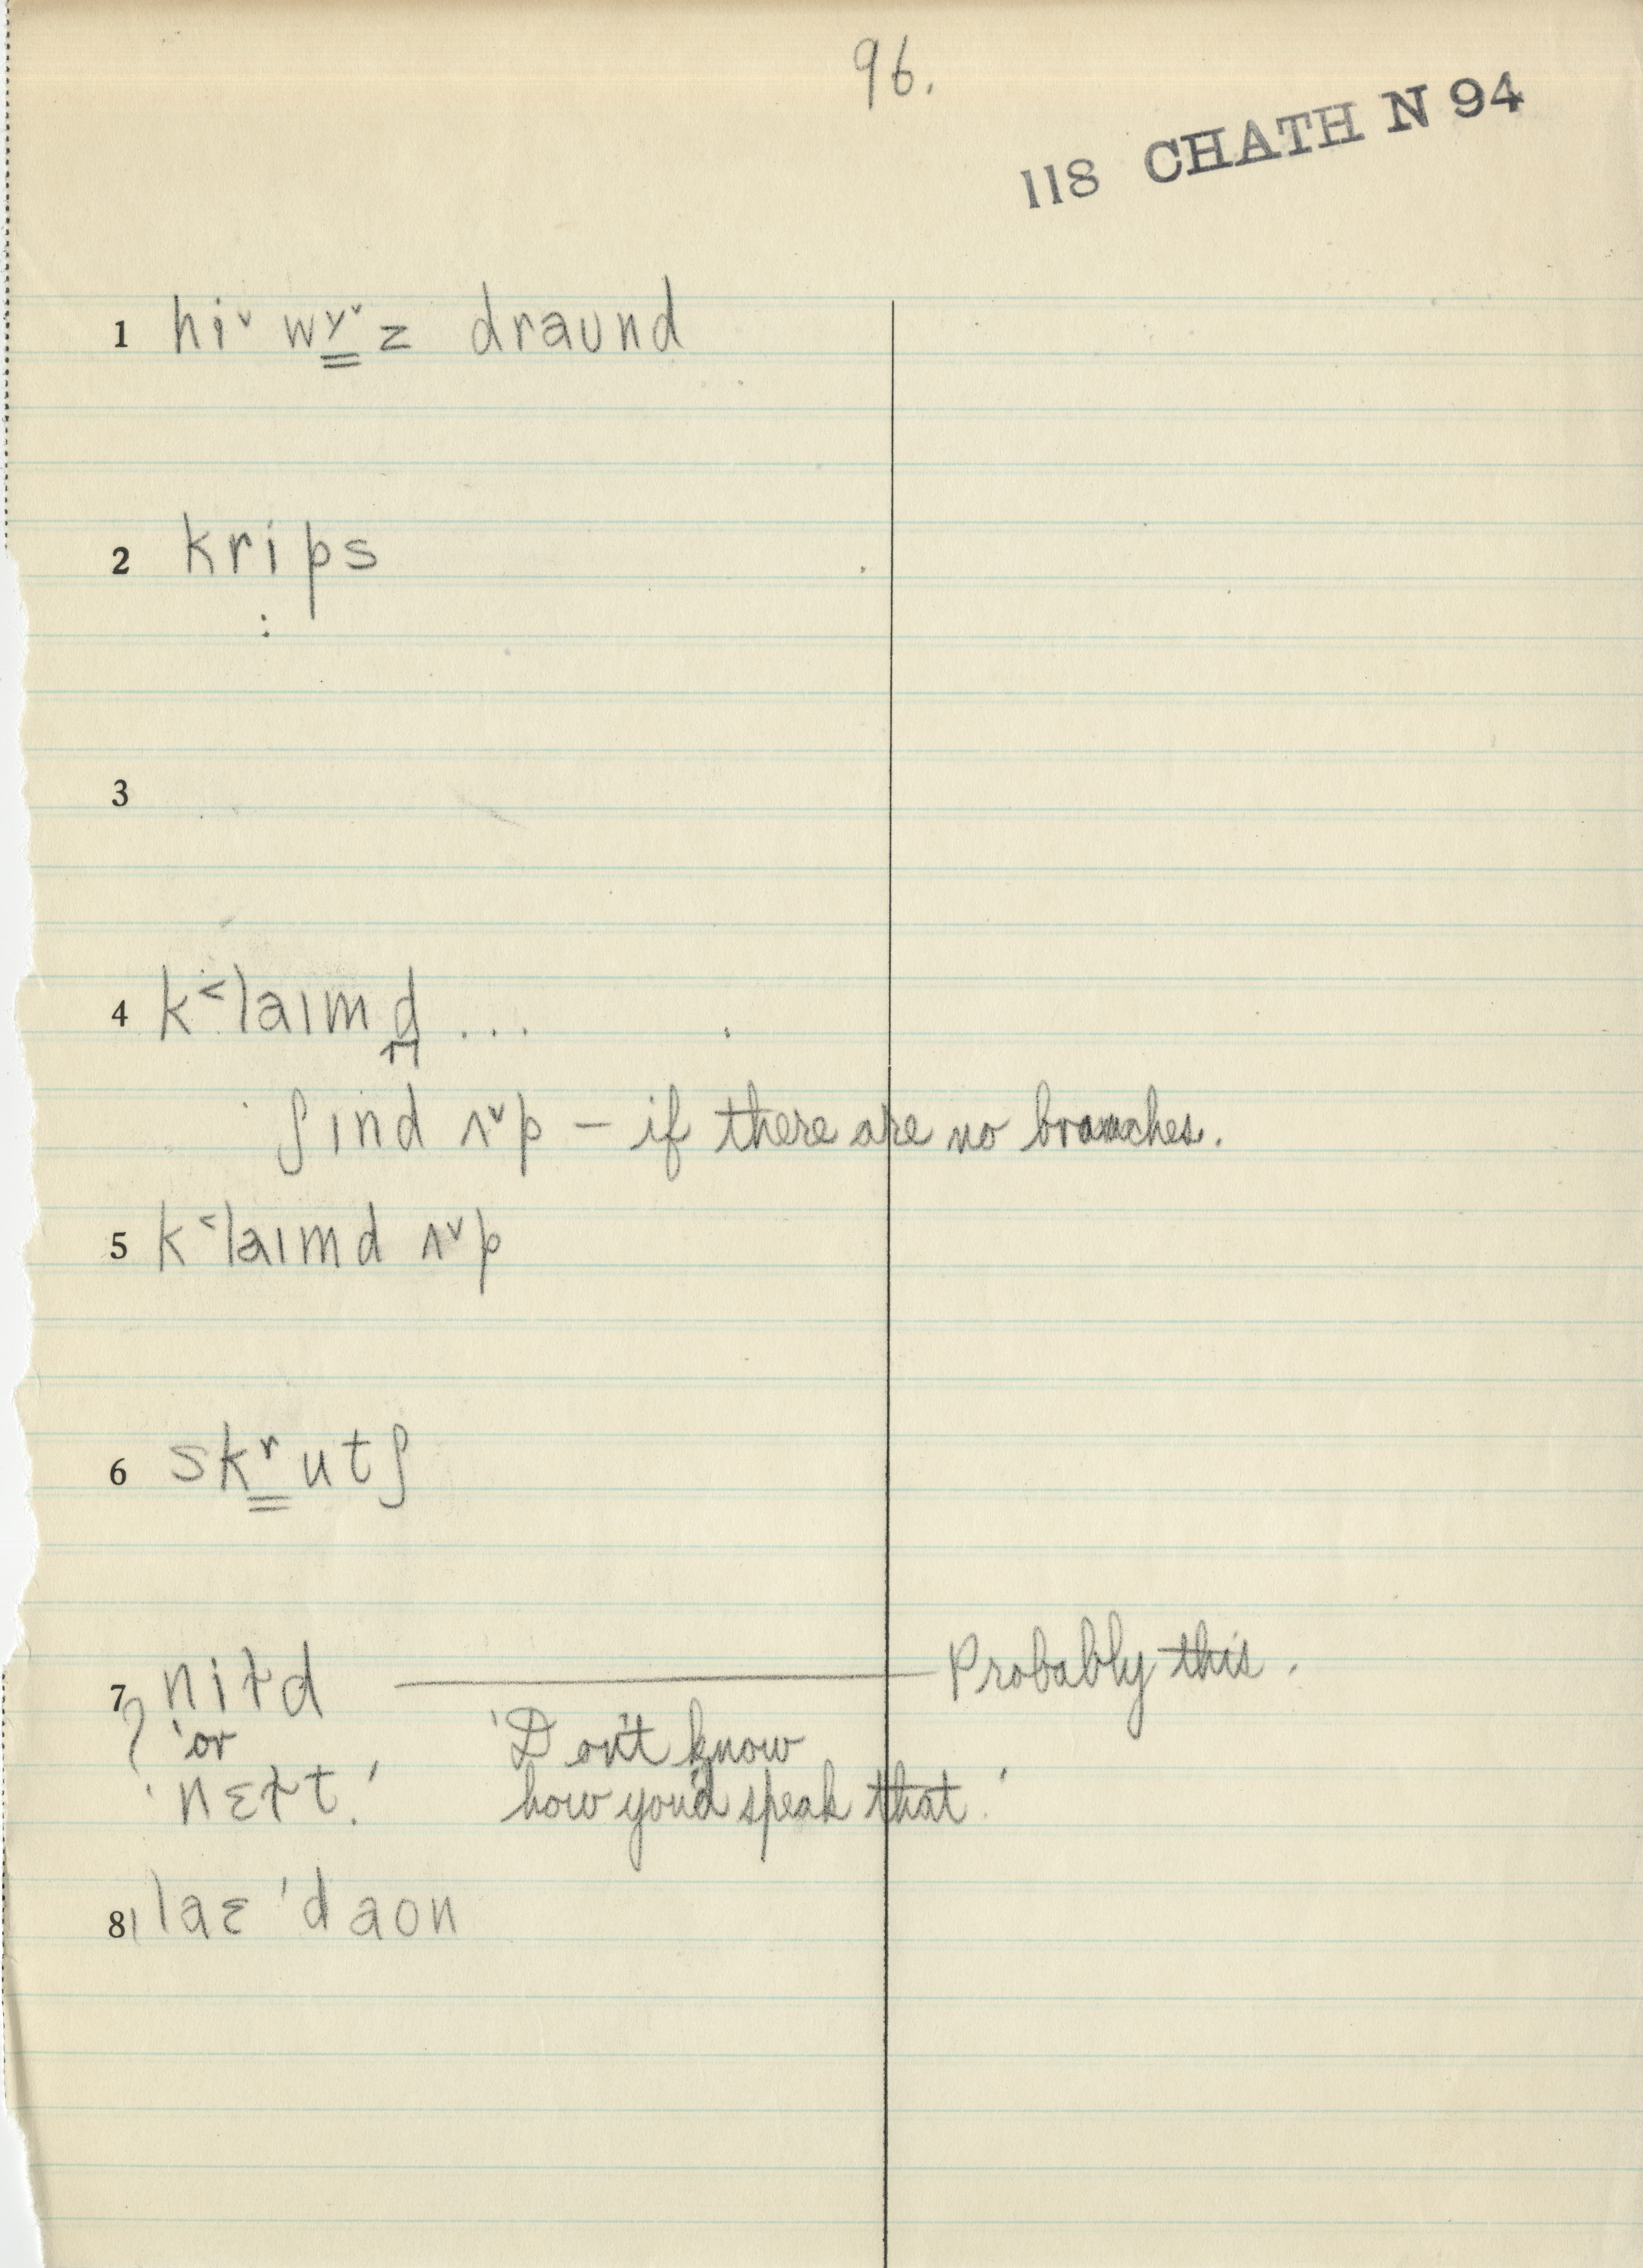 96.
118 CHATH N 94
1 hiˇ wɤˇz draund
2 krips
3
4 k˂laɪmd ...
ʃɪnd ʌˇp – if there are no branches.
5 k˂laɪmd ʌˇp
6 skʳutʃ
7 niɫd — Probably this.
? 'or 'Don't know
'nɛɫt.' how you'd speak that.'
8 laɛ 'daon